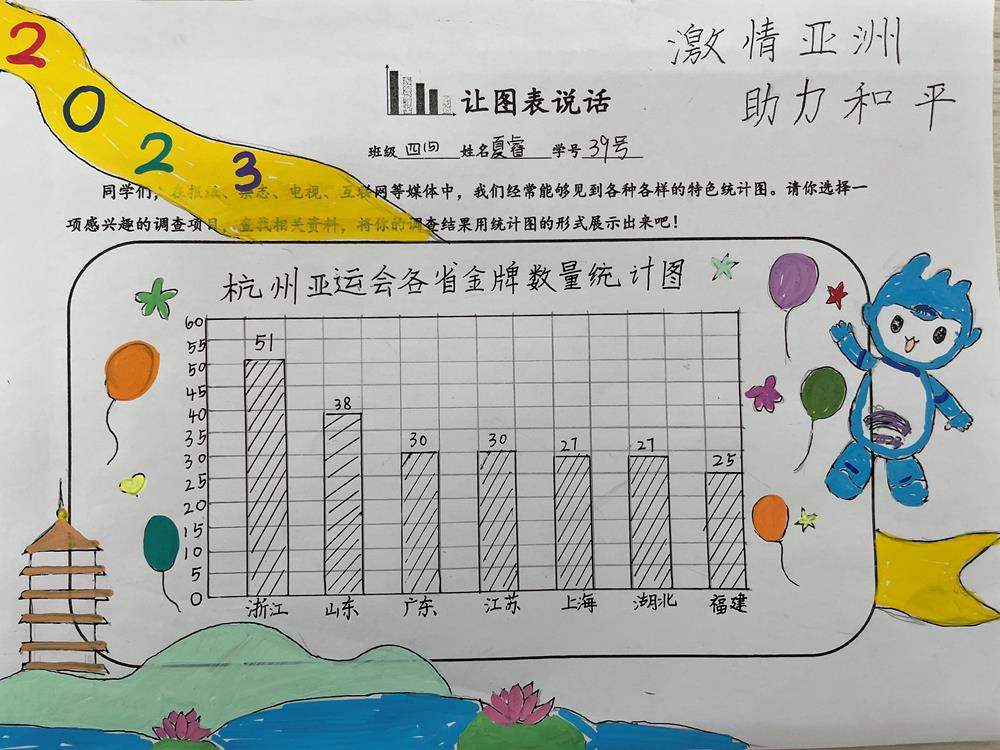 2023
激情亚洲
助力和平
让图表说话
班级 四(5) 姓名 夏睿 学号 39号
同学们,在报纸、杂志、电视、互联网等媒体中,我们经常能够见到各种各样的特色统计图。请你选择一
项感兴趣的调查项目,查找相关资料,将你的调查结果用统计图的形式展示出来吧!
杭州亚运会各省金牌数量统计图
60
55
50
45
40
35
30
25
20
15
10
5
0
51
38
30
30
27
27
25
浙江 山东 广东 江苏 上海 湖北 福建